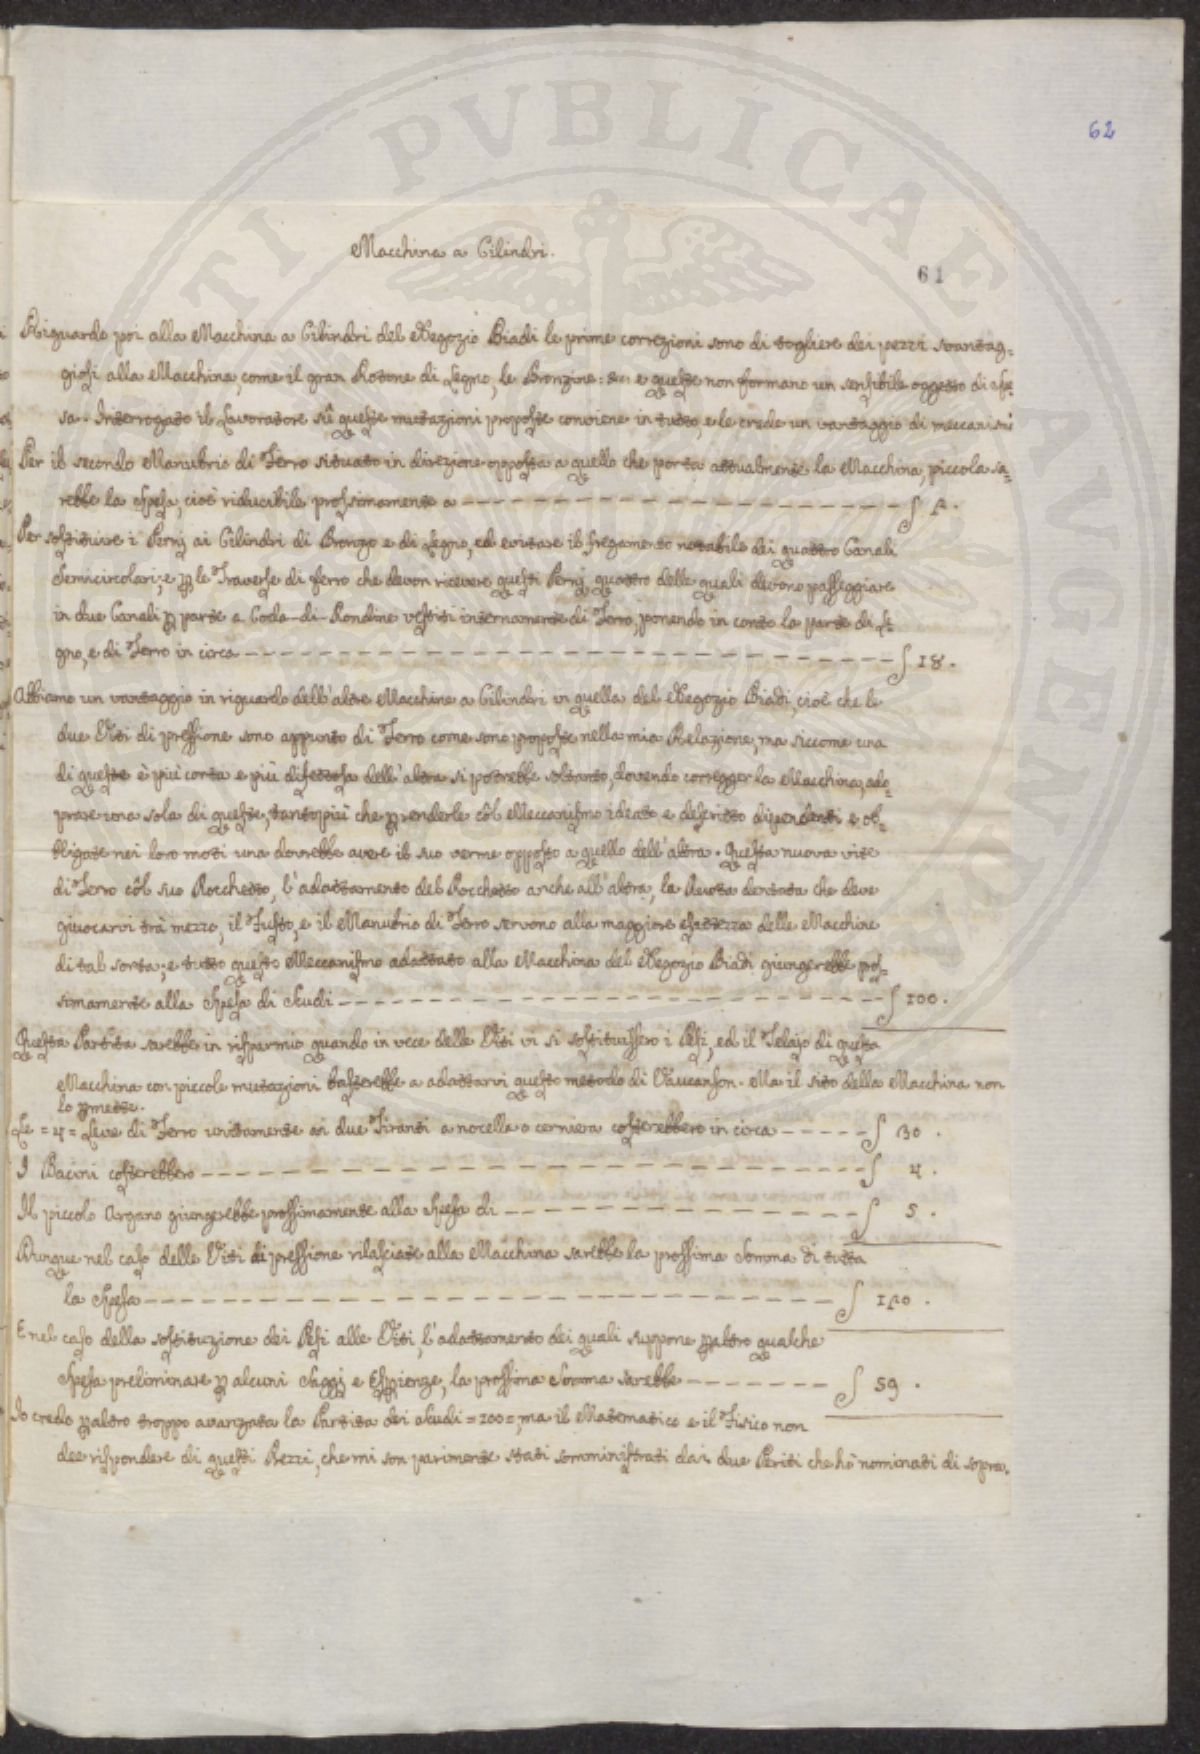 62
Macchina a Cilindri.
61
Riguardo poi alla Macchina a Cilindri del Negozio Biadi le prime correzioni sono di togliere dei pezzi svantag=
giosi alla Macchina, come il gran Rotone di Legno, le Bronzine: &c: e queste non formano un sensibile oggetto di spe
sa. Interrogato il Lavoratore sù queste mutazioni proposte conviene in tutto, e le crede un vantaggio di meccanismi
Per il secondo Manubrio di Ferro situato in direzione opposta a quello che porta attualmente la Macchina, piccola sa=
rebbe la spesa, cioè riducibile prossimamente a
Per sostituire i Pernj ai Cilindri di Bronzo e di Legno, ed evitare il fregamento notabile dei quattro Canali
Semicircolari; e p le Traverse di ferro che devon ricevere questi Pernj quattro delle quali devono passeggiare
in due Canali p parte a Coda-di-Rondine vestiti internamente di Ferro, ponendo in conto la parte di Le=
gno, e di Ferro in circa ʃ 18.
Abbiamo un vantaggio in riguardo dell'altre Macchine a Cilindri in quella del Negozio Biadi, cioè che le
due Viti di pressione sono appunto di Ferro come sono proposte nella mia Relazione, ma siccome una
di queste è più corta e più difettosa dell'altra si potrebbe soltanto, dovendo corregger la Macchina, ado=
prare una sola di queste, tantopiù che p renderle côl Meccanismo ideato e descritto dipendenti e ob=
bligate nei loro moti una dovrebbe avere il suo verme opposto a quello dell'altra. Questa nuova vite
di Ferro côl suo Rocchetto, l'adattamento del Rocchetto anche all'altra, la Ruota dentata che deve
giuocarvi trà mezzo, il Fusto, e il Manubrio di Ferro servono alla maggiore esattezza delle Macchine
di tal sorta; e tutto questo Meccanismo adattato alla Macchina del Negozio Biadi giungerebbe pros=
simamente alla spesa di scudi ʃ 100.
Questa Partita sarebbe in risparmio quando in vece delle Viti vi si sostituissero i Pesi, ed il Telajo di questa
Macchina con piccole mutazioni basterebbe a adattarvi questo metodo di Vaucanson. Ma il sito della Macchina non
lo pmette.
Le = 4 = Leve di Ferro unitamente ai due Tiranti a nocella o cerniera costerebbero in circa ʃ 30.
I Bacini costerebbero ʃ 4.
Il piccolo Argano giungerebbe prossimamente alla spesa di ʃ 5.
Dunque nel caso delle Viti di pressione rilasciate alla Macchina sarebbe la prossima Somma di tutta
la spesa
E nel caso della sostituzione dei Pesi alle Viti, l'adattamento dei quali suppone paltro qualche
spesa preliminare p alcuni saggi e Espienze, la prossima Somma sarebbe ʃ 59.
Io credo paltro troppo avanzata la Partita dei scudi = 100 =, ma il Matematico e il Fisico non
dee rispondere di questi Prezzi, che mi son parimente stati somministrati dai due Periti che hò nominati di sopra.